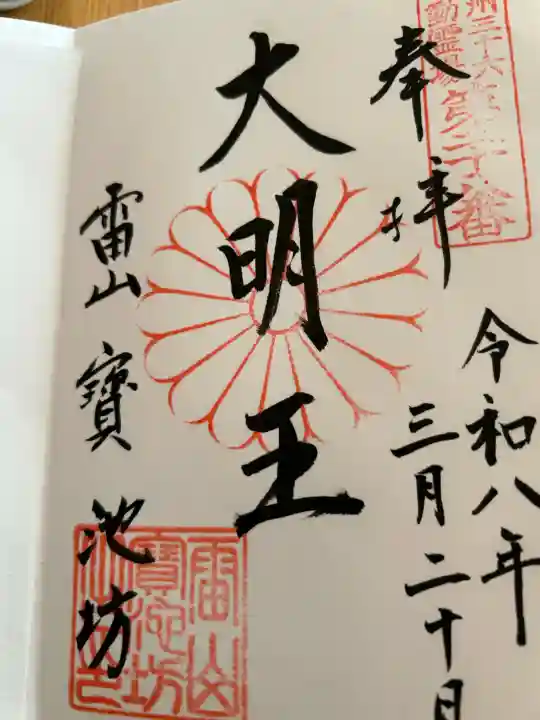 州三十六
動霊場
番
奉拝
令和八年
三月二十日
大明王
雷山
寶池坊
雷山
寶池坊